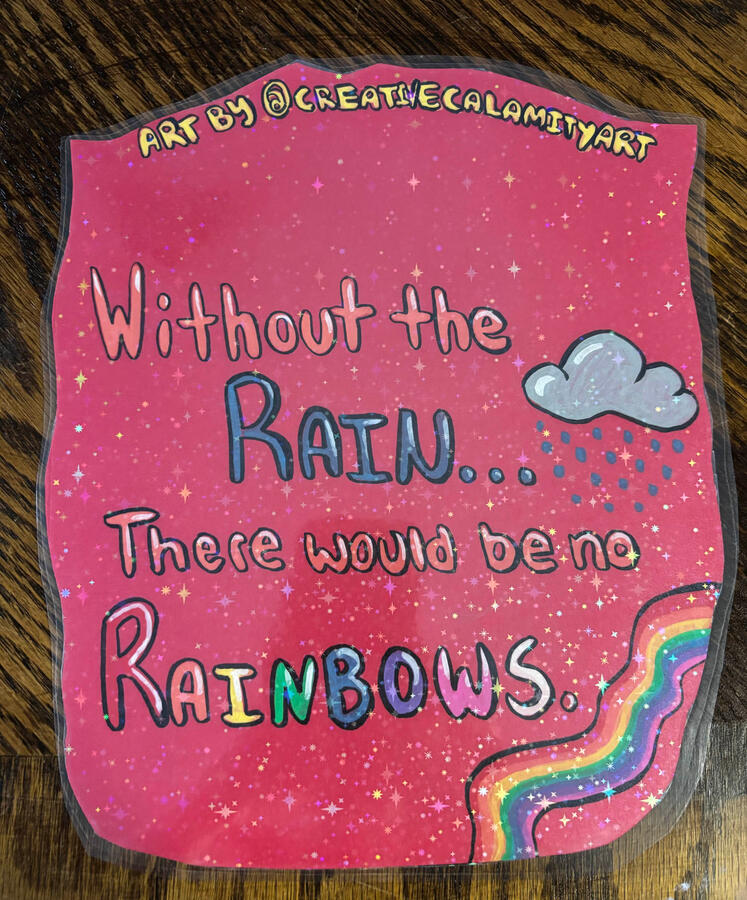 ART BY @CREATIVECALAMITYART
Without the
RAIN...
There would be no
RAINBOWS.